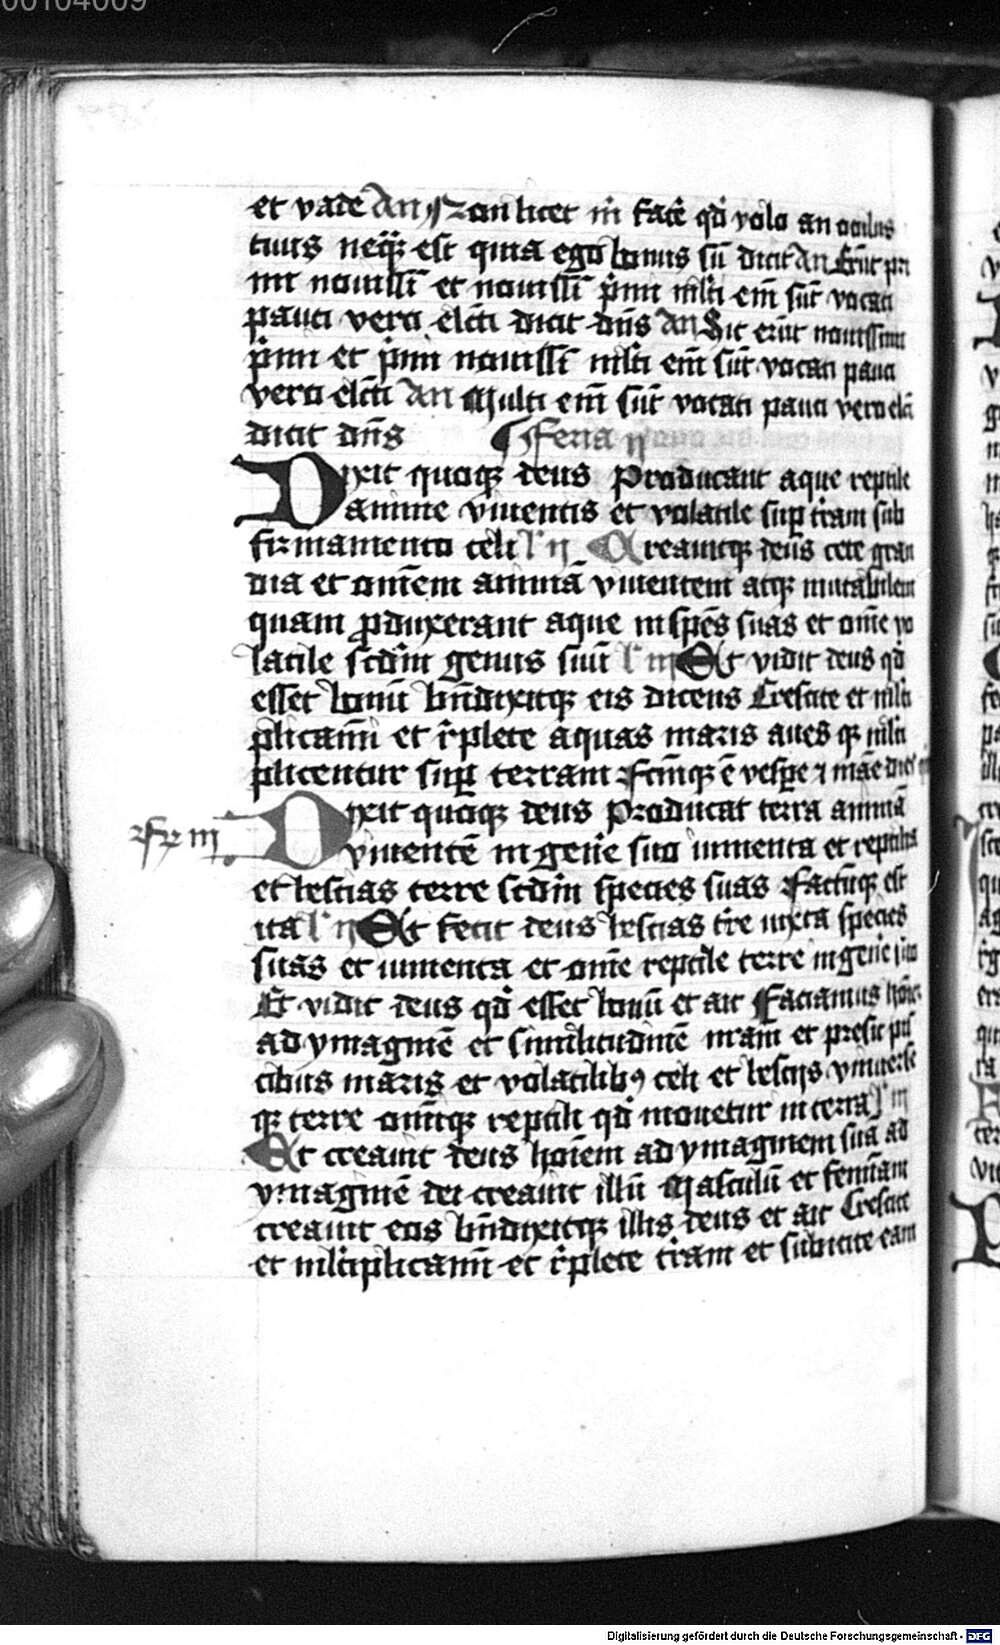 00104009
et vade An Non licet m̄ facē qd̄ volo an oculus
tuus neqȝ est quia ego bonus sū dicit An Erūt pri
mi nouissī et nouissī p̄mi ml̄ti em̄ sūt vocati
pauci vero elc̄ti dicit dn̄s An Sic erūt nouissimi
p̄mi et p̄mi nouissī ml̄ti em̄ sūt vocati pauci
vero elc̄ti An Multi em̄ sūt vocati pauci vero elc̄i
dicit dn̄s ¶ Feria ij
Dixit quoqȝ deus Producant aque reptile
anime viuentis et volatile suꝑ tr̄am sub
firmamento celi l' ij Creauitqȝ deus cete gran
dia et omēm animā viuentem atqȝ mutabilem
quam ꝓduxerant aque in spēs suas et omē vo
latile scd̄m genus suū l' iij Et vidit deus qd̄
esset bonū bn̄dixitqȝ eis dicens Crescite et ml̄ti
plicamī et r̄plete aquas maris aues qȝ ml̄ti
plicentur suꝑ terram Fc̄mqȝ ē vespe ⁊ māe dies
Fr̄ iij
Dixit quoqȝ deus Producat terra animā
viuentē in gen̄e suo iumenta et reptilia
et bestias terre scd̄m species suas Factūqȝ est
ita l' ij Et fecit deus bestias tr̄e iuxta species
suas et iumenta et omē reptile terre in gen̄e suo
Et vidit deus qd̄ esset bonū et ait Faciamus hoīem
ad ymaginē et similitudinē nr̄am et presit pis
cibus maris et volatilibꝰ celi et bestijs vniuerse
qȝ terre omīqȝ reptili qd̄ mouetur in terra l' iij
Et creauit deus hoīem ad ymaginem suā ad
ymaginē dei creauit illū Masculū et femīam
creauit eos bn̄dixitqȝ illis deus et ait Crescite
et ml̄tiplicamī et r̄plete tr̄am et subicite eam
Digitalisierung gefördert durch die Deutsche Forschungsgemeinschaft - DFG